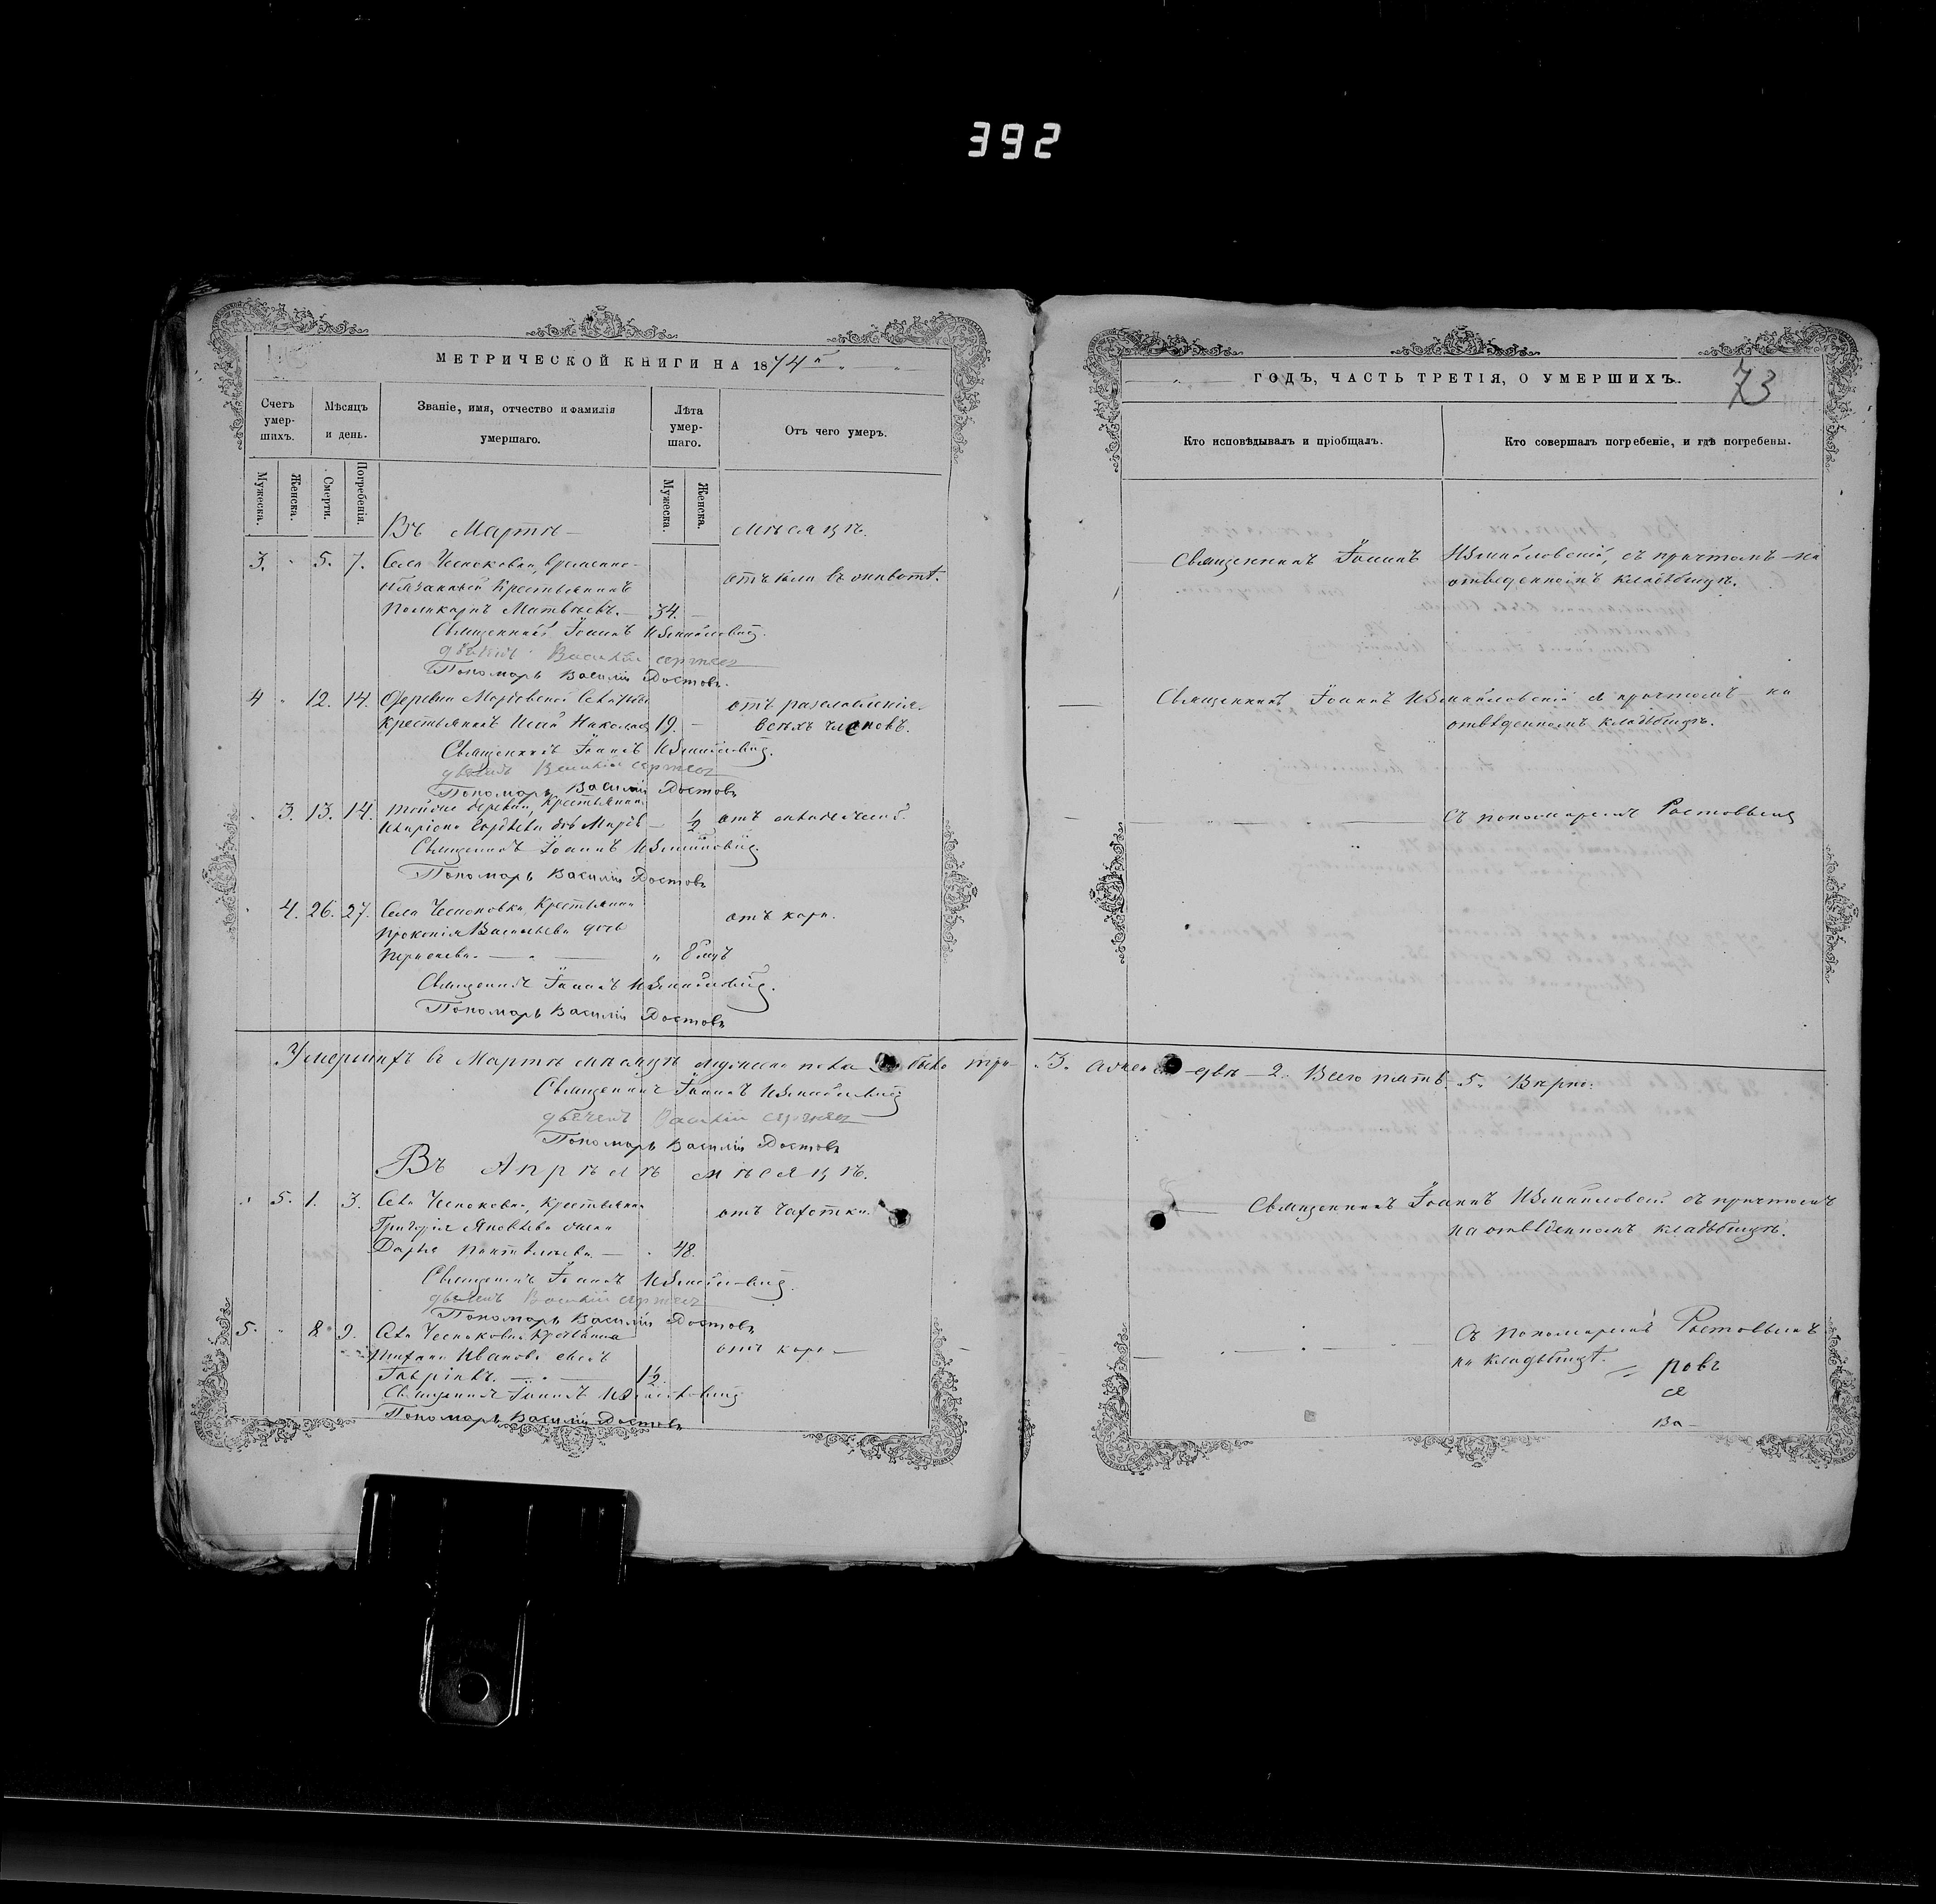 392
МЕТРИЧЕСКОЙ КНИГИ НА 1874й
ГОДЪ, ЧАСТЬ ТРЕТІЯ, О УМЕРШИХЪ.
73
Счетъ умер-шихъ.
Мѣсяцъ и день.
Званіе, имя, отчество и фамилія умершаго.
Лѣта умер-шаго.
Отъ чего умеръ.
Кто исповѣдывалъ и пріобщалъ.
Кто совершалъ погребеніе, и гдѣ погребены.
Мужеска.
Женска.
Смерти.
Погребенія.
Мужеска.
Женска.
Въ Мартѣ мѣсяцѣ.
3. 5. 7. Села Чесноковки, временно-
обязанный Крестьянинъ
Поликарпъ Матвѣевъ. 34.
отъ боли въ животѣ.
Священникъ Іоаннъ Измайловскій, съ причтомъ на
отведенномъ кладбищѣ.
Священникъ Іоаннъ Измайловскій.
Василій
Пономарь Василій Ростовъ.
4 12. 14. Деревни
крестьянинъ Исай Николаевъ 19.
отъ разслабленія
всѣхъ членовъ.
Священникъ Іоаннъ Измайловскій съ причтомъ на
отведенномъ кладбищѣ.
Священникъ Іоаннъ Измайловскій.
Василій
Пономарь Василій Ростовъ
3. 13. 14. тойже деревни, Крестьянина
1/2
Съ пономаремъ Ростовымъ
Священникъ Іоаннъ Измайловскій.
Пономарь Василій Ростовъ
4. 26. 27. Села Чесноковки, Крестьянина
Прокопія Васильева дочь
8 мцъ
отъ кори.
Священникъ Іоаннъ Измайловскій.
Пономарь Василій Ростовъ
Умершихъ въ Мартѣ мѣсяцѣ мужеска пола было три 3. двѣ 2. Всего пять 5. Вѣрно:
Священникъ Іоаннъ Измайловскій
Василій
Пономарь Василій Ростовъ
Въ Апрѣлѣ мѣсяцѣ.
5. 1. 3. Села Чесноковки, Крестьянина
Григорія Яковлева жена
Дарья 48.
отъ чахотки.
Священникъ Іоаннъ Измайловскій съ причтомъ
на отведенномъ кладбищѣ.
Священникъ Іоаннъ Измайловскій.
Василій
Пономарь Василій Ростовъ
5. 8 9. Села Чесноковки Крестьянина
Иванова сынъ
Гавріилъ. 1 1/2.
отъ кори
Съ пономаремъ Ростовымъ
на кладбищѣ.
ровъ
се
Ва
Священникъ Іоаннъ Измайловскій
Пономарь Василій Ростовъ